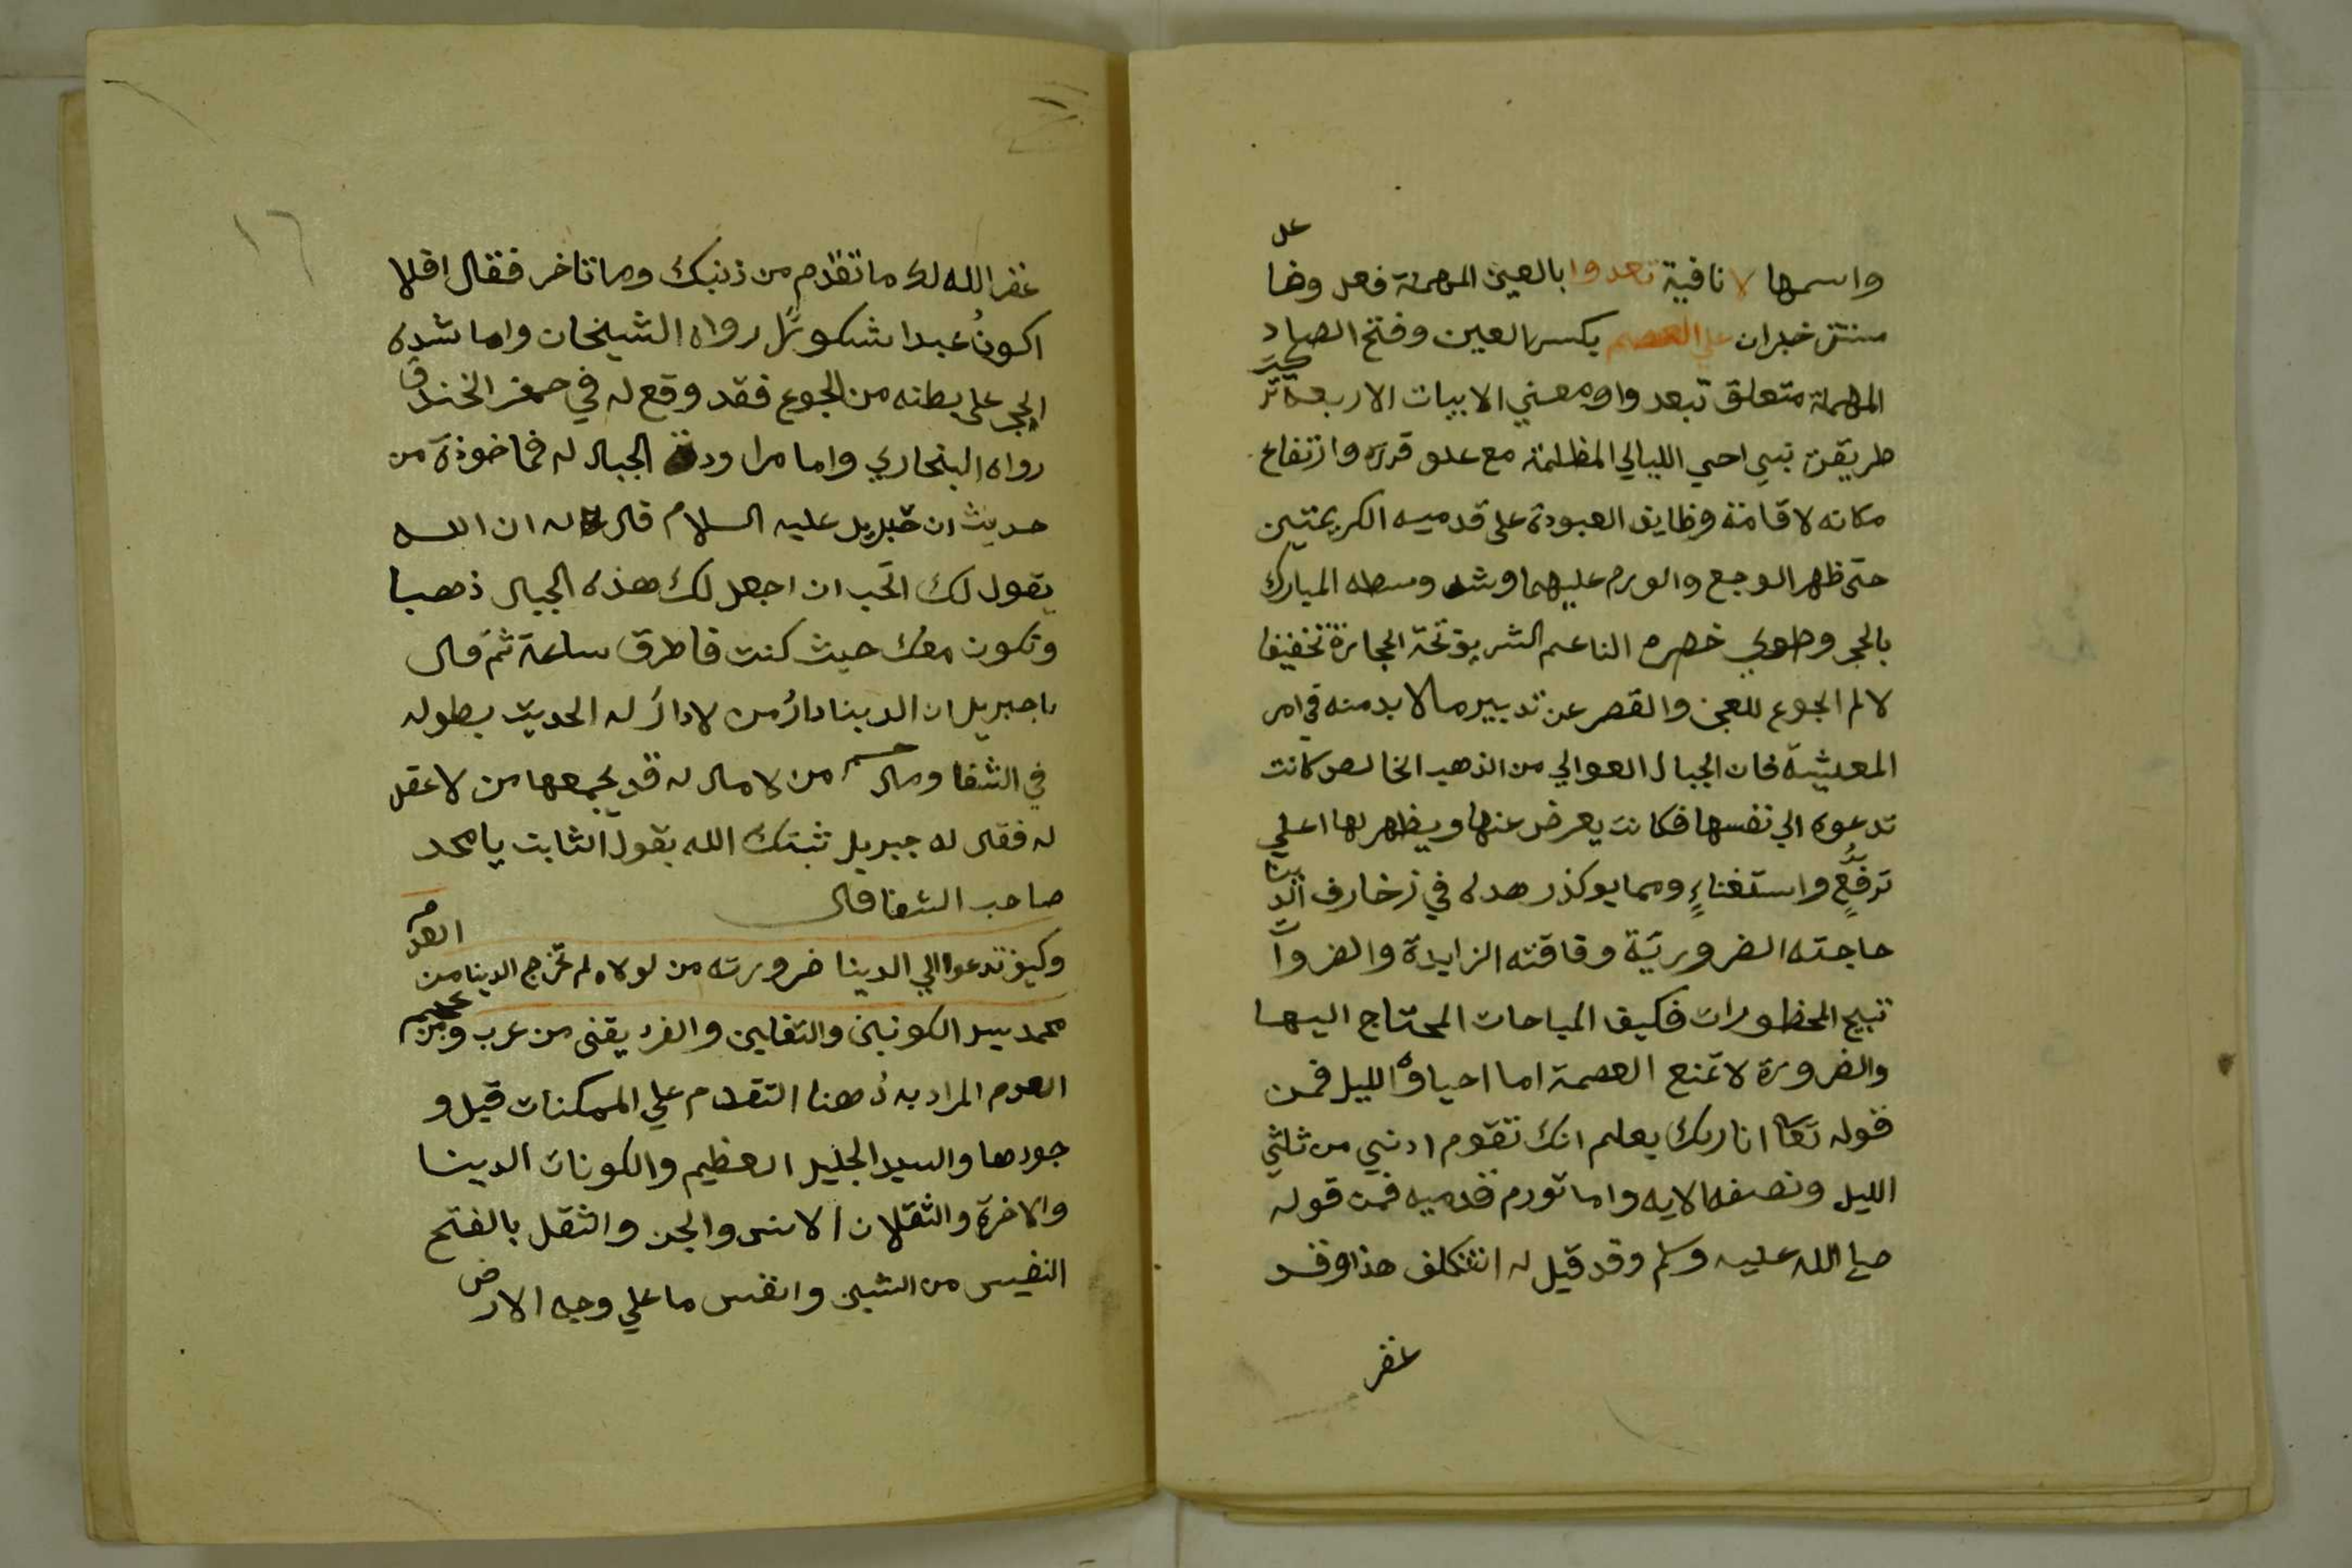 واسمها لا نافية تعدوا بالعين المهملة فعل وفا
عل
مستتر خبر ان علي العصم بكسر العين وفتح الصاد
المهملة متعلق تبعدوا ومعني الابيات الاربعة تر
كت
طريقة نبي احي الليالي المظلمة مع علو قدره وارتفاع
مكانه لاقامة وظايف العبودة على قدميه الكريمتين
حتى ظهر الوجع والورم عليهما وشد وسطه المبارك
بالحجر وطوي خصره الناعم الشريف تحة الحجارة تخفيفا
لالم الجوع للعجز والقصر عن تدبير مالا بد منه في امر
المعيشة فان الجبال العوالي من الذهب الخالص كانت
تدعوه الي نفسها فكانت يعرض عنها ويظهر لها اعلي
ترفع واستغناء ومما يوكد زهده في زخارف الد
ينا
حاجته الضرورية وفاقته الزايدة والضروا
ت
تبيح المحظورات فكيف المباحات المحتاج اليها
والضرورة لا تمنع العصمة اما احياؤه الليل فمن
قوله تعا ان ربك يعلم انك تقوم ادني من ثلثي
الليل ونصفه الايه واما تورم قدميه فمن قوله
صلي الله عليه وسلم وقد قيل له اتتكلف هذا وقد
غفر
١٦
غفر الله لك ما تقدم من ذنبك وما تاخر فقال افلا
اكون عبدا شكورا رواه الشيخان واما شده
الحجر على بطنه من الجوع فقد وقع له في حفر الخندق
رواه البخاري واما مراودة الجبال له فماخوذة من
حديث ان جبريل عليه السلام قال له ان الله
يقول لك اتحب ان اجعل لك هذه الجبال ذهبا
وتكون معك حيث كنت فاطرق ساعة ثم قال
يا جبريل ان الدينا دار من لا دار له الحديث بطوله
في الشفا ومال من لا مال له قد يجمعها من لا عقل
له فقال له جبريل ثبتك الله بقول الثابت يا محمد
صاحب الشفا قال
وكيف تدعوا الي الدينا ضرورته من لولاه لم تخرج الدينا من
العدم
محمد سيد الكونين والثقلين والفريقين من عرب ومن
عجم
العدم المراد به ههنا التقدم علي الممكنات قبل و
جودها والسيد الجليل العظيم والكونان الدينا
والاخرة والثقلان الانس والجن والثقل بالفتح
النفيس من الشيئ وانفس ما علي وجه الارض